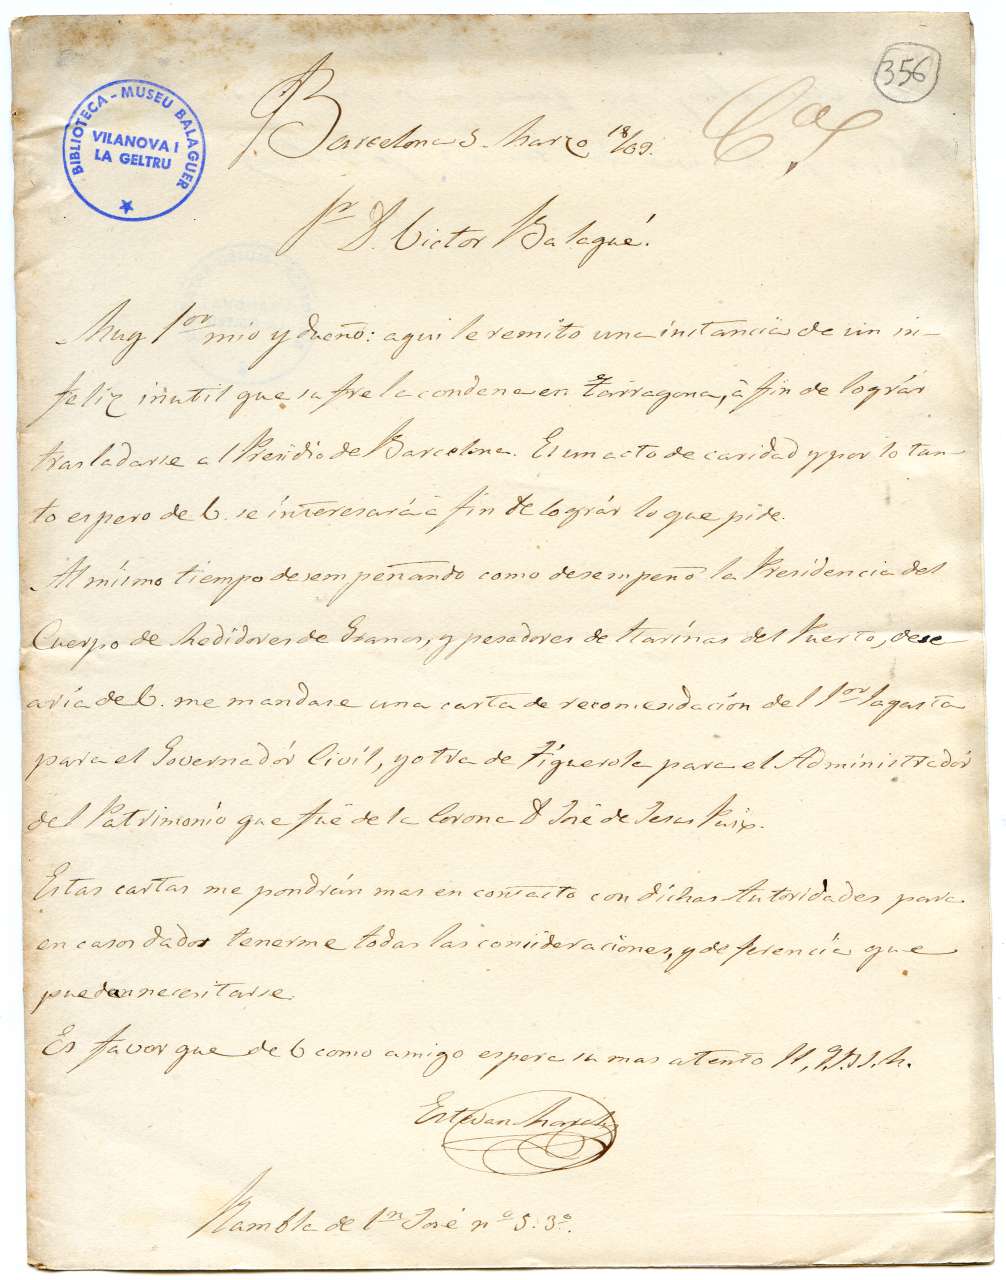 356
BIBLIOTECA - MUSEU BALAGUER
VILANOVA I
LA GELTRU
Barcelona 3 Marzo 18/69.
Sr D. Victor Balagué.
Muy Sor mio y dueño: aqui le remito una instancia de un in-
feliz inutil que sufre la condena en Tarragona, á fin de lográr
trasladarse al Presidio de Barcelona. Es un acto de caridad y por lo tan-
to espero de V. se interesará á fin de lográr lo que pide.
Al mismo tiempo desempeñando como desempeño la Presidencia del
Cuerpo de Medidores de Granos, y pesadores de Harinas del Puerto, dese
aría de V. me mandase una carta de recomendación del Sor Sagasta
para el Governadór Civíl, y otra de Figuerola para el Administradór
del Patrimonio que fué de la Corona D José de Jesus Puig.
Estas cartas me pondrán mas en contacto con dichas Autoridades para
en casos dados tenerme todas las consideraciones, y deferencia que
puedan necesitarse.
Es favor que de V como amigo espera su mas atento S. S. Q. B. S. M.
Estevan
Rambla de Sn José nº 5. 3º.